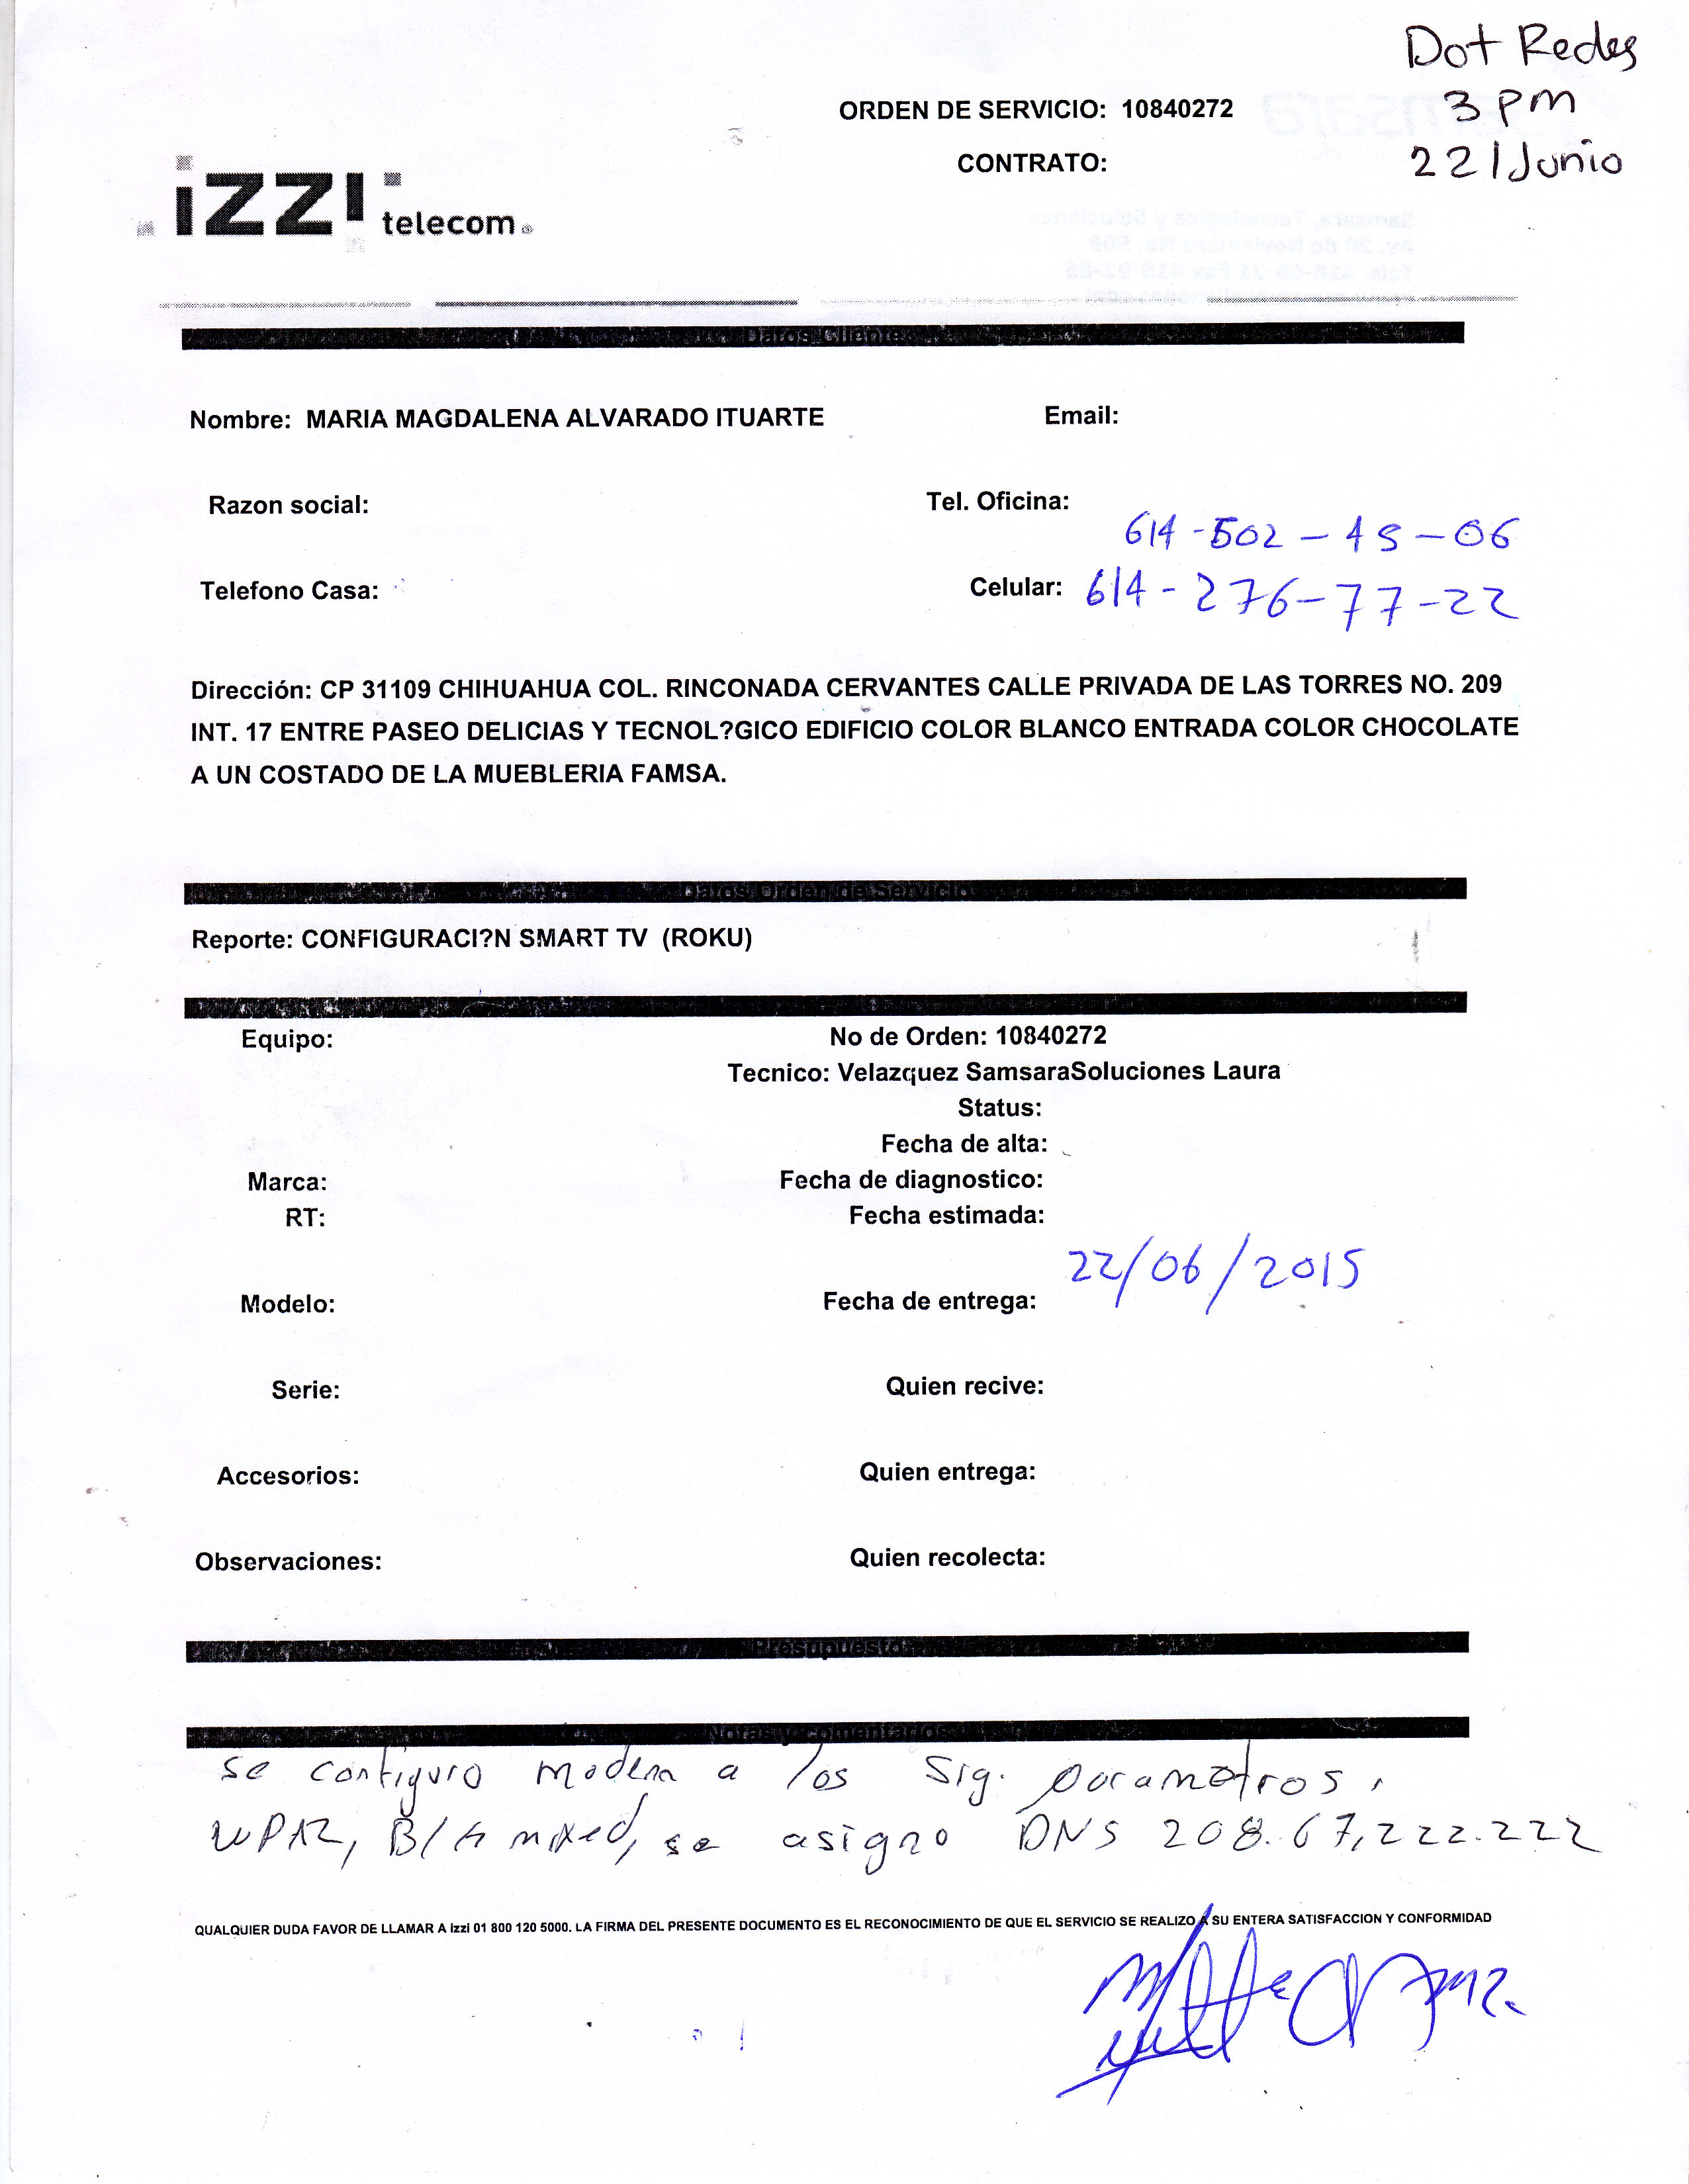 Dot Redes
3 pm
22/Junio
ORDEN DE SERVICIO: 10840272
CONTRATO:
izzi telecom
Datos Cliente
Nombre: MARIA MAGDALENA ALVARADO ITUARTE Email:
Razon social: Tel. Oficina:
614-502-45-06
Telefono Casa: Celular: 614-276-77-22
Dirección: CP 31109 CHIHUAHUA COL. RINCONADA CERVANTES CALLE PRIVADA DE LAS TORRES NO. 209
INT. 17 ENTRE PASEO DELICIAS Y TECNOL?GICO EDIFICIO COLOR BLANCO ENTRADA COLOR CHOCOLATE
A UN COSTADO DE LA MUEBLERIA FAMSA.
Datos Orden de Servicio
Reporte: CONFIGURACI?N SMART TV (ROKU)
Equipo: No de Orden: 10840272
Tecnico: Velazquez SamsaraSoluciones Laura
Status:
Fecha de alta:
Marca: Fecha de diagnostico:
RT: Fecha estimada:
22/06/2015
Modelo: Fecha de entrega:
Serie: Quien recive:
Accesorios: Quien entrega:
Observaciones: Quien recolecta:
Presupuesto
Notas y comentarios
se configuro modem a los sig. parametros,
WPA2, B/G mixed, se asigno DNS 208.67,222.222
QUALQUIER DUDA FAVOR DE LLAMAR A izzi 01 800 120 5000. LA FIRMA DEL PRESENTE DOCUMENTO ES EL RECONOCIMIENTO DE QUE EL SERVICIO SE REALIZO A SU ENTERA SATISFACCION Y CONFORMIDAD